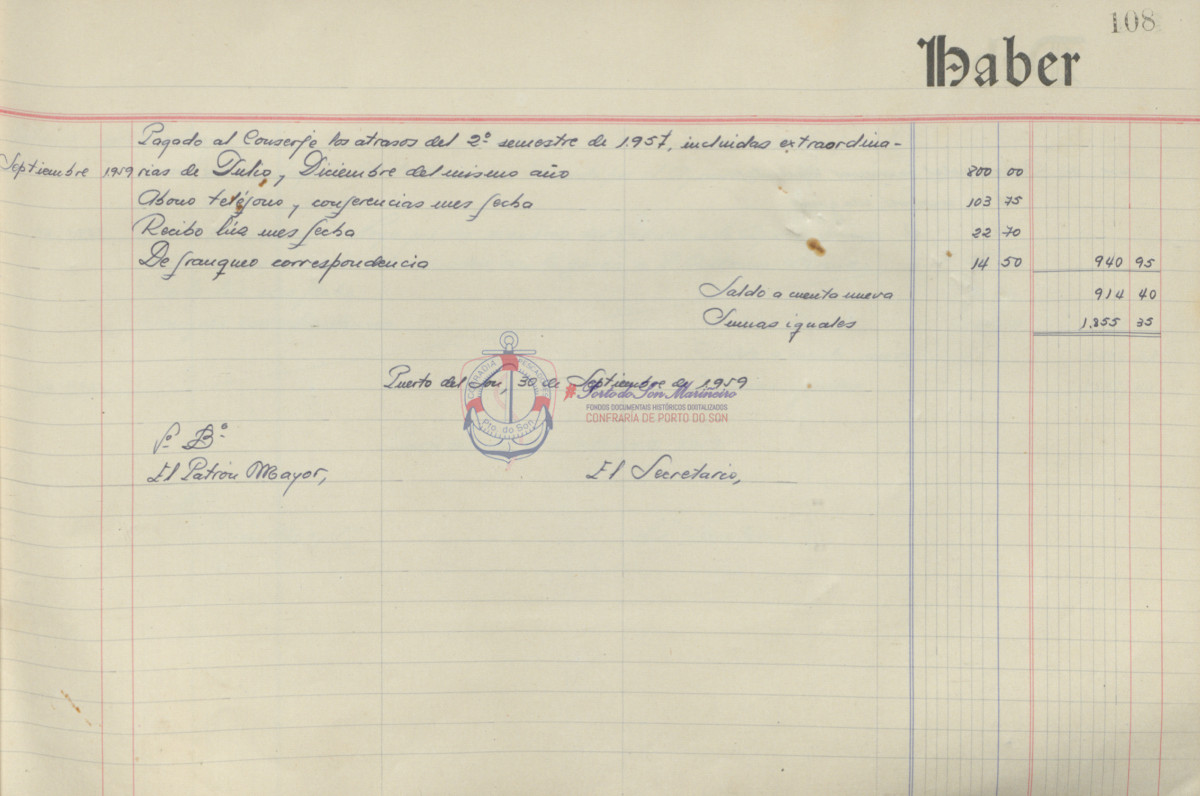 108
Haber
Pagado al Conserje los atrasos del 2º semestre de 1957, incluidas extraordina-
Septiembre 1959 rias de Julio y Diciembre del mismo año 800 00
Abono teléfono y conferencias mes fecha 103 75
Recibo luz mes fecha 22 70
De franqueo correspondencia 14 50 940 95
Saldo a cuenta nueva 914 40
Sumas iguales 1.855 35
Puerto del Son, 30 de Septiembre de 1959
Porto do Son Mariñeiro
FONDOS DOCUMENTAIS HISTÓRICOS DIXITALIZADOS
CONFRARÍA DE PORTO DO SON
Pto. do Son
Vº Bº
El Patrón Mayor, El Secretario,